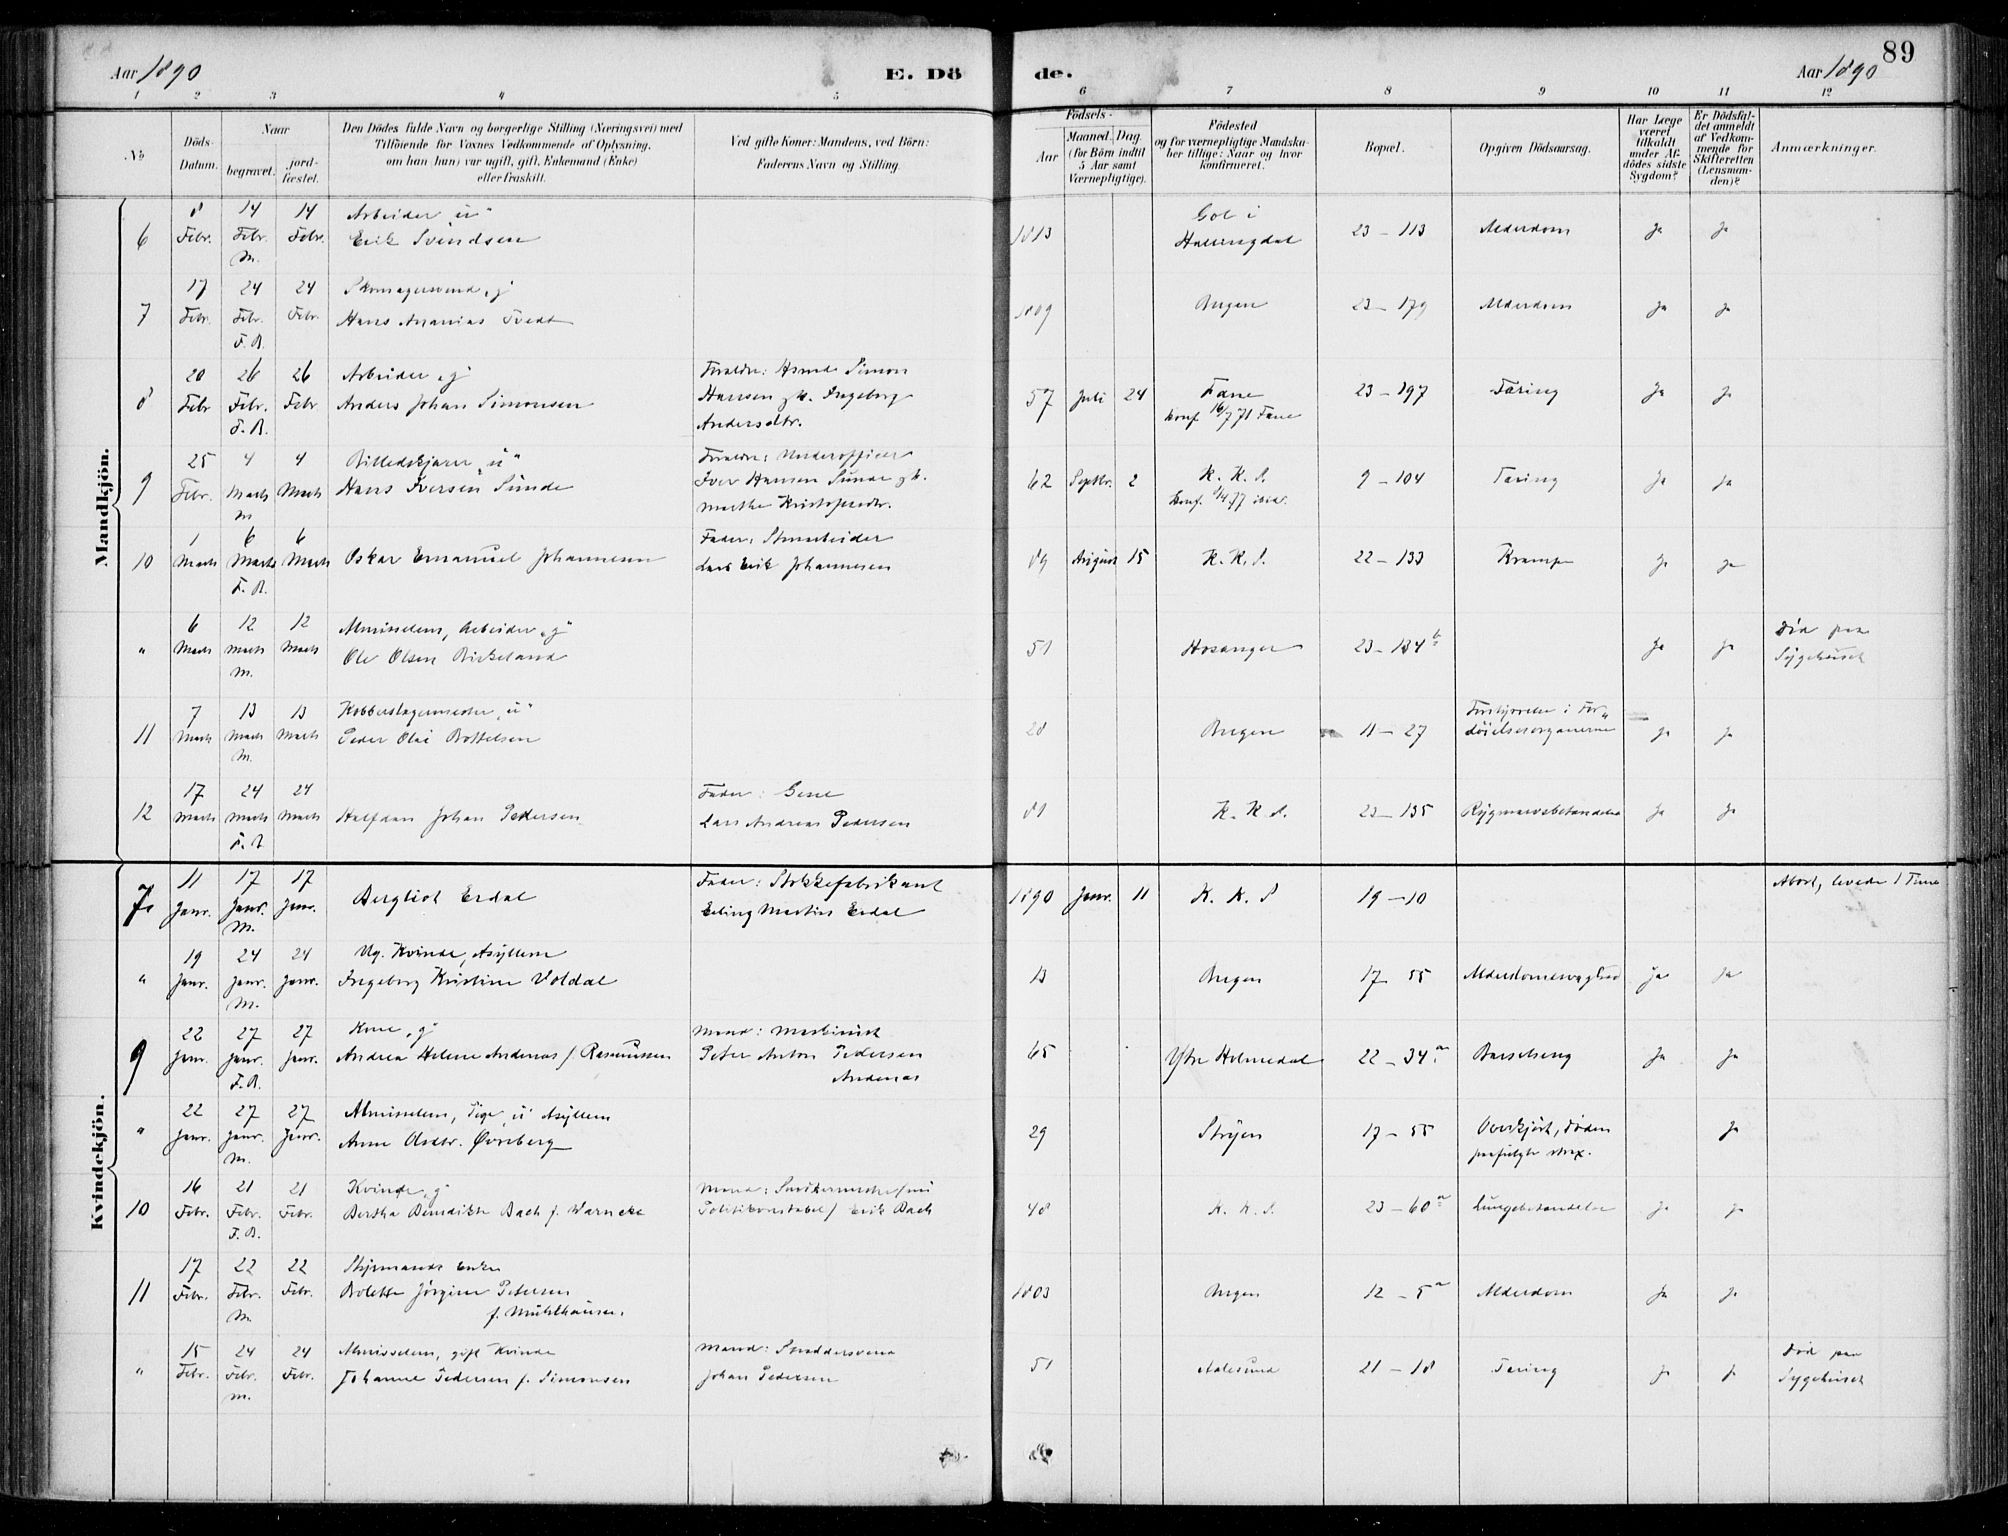 89
Aar 1890
E. Dö
de.
Aar 1890
1 2 3 4 5 6 7 8 9 10 11 12
No
Döds-Datum.
Naar
begravet.
jord-fæstet.
Den Dödes fulde Navn og borgerlige Stilling (Næringsvei) med
Tilföiende for Voxnes Vedkommende af Oplysning,
om han (hun) var ugift, gift, Enkemand (Enke)
eller fraskilt.
Ved gifte Koner: Mandens, ved Börn:
Faderens Navn og Stilling.
Födsels-
Aar
Maaned. Dag.
(for Börn indtil
5 Aar samt
Værnepligtige).
Födested
og for værnepligtige Mandska-
ber tillige: Naar og hvor
konfirmeret.
Bopæl.
Opgiven Dödsaarsag.
Har Læge
været
tilkaldt
under Af-
dödes sidste
Sygdom?
Er Dödsfal-
det anmeldt
af Vedkom-
mende for
Skifteretten
(Lensman-
den)?
Anmærkninger.
Mandkjön.
6 8 Febr. 14 Febr. M. 14 Febr. Arbeider "u"
Erik Svendsen 1813 Gol i
Hallingdal 23 - 113 Alderdom Ja Ja
7 17 Febr. 24 Febr. F. B. 24 Febr. Skomagersvend "g"
Hans Ananias Tvedt 1809 Bergen 23 - 179 Alderdom Ja Ja
8 20 Febr 26 Febr. F. B. 26 Febr Arbeider "g"
Anders Johan Simonsen Forældre: Simon
Hansen gk. Ingeborg
Andersdtr. 57 Juli 24 Fane
konf. 16/7 71 Fane 23 - 197 Tæring Ja Ja
9 25 Febr. 4 Marts M 4 Marts Billedskjærer "u"
Hans Iversen Sunde Forældre: Underofficer
Iver Hansen Sunde gk.
Marthe Kristofersdtr. 62 Septbr. 2 K. K. S.
konf. 77 ibid. 9 - 104 Tæring Ja Ja
10 1 Marts 6 Marts F. B. 6 Marts Oskar Emanuel Johannesen Fader: Stenarbeider
Lars Erik Johannesen 89 August 15 K. K. S. 22 - 133 Krampe Ja Ja
" 6 Marts 12 Marts M. 12 Marts Almisselem, Arbeider "g"
Ole Olsen Birkeland 51 Hosanger 23 - 134 b Ja Ja Död paa
Sygehuset
11 7 Marts 13 Marts M. 13 Marts Kobberslagermester "u"
Peder Olai Bottelsen 28 Bergen 11 - 27 Forstyrrelse i For-
döielsesorganerne Ja Ja
12 17 Marts 24 Marts F. B 24 Marts Halfdan Johan Pedersen Fader:
Lars Andreas Pedersen 81 K. K. S. 23 - 135 Rygmarvsbetændelse Ja Ja
Kvindekjön.
7 11 Janr. 17 Janr. M. 17 Janr. Bergliot Erdal Fader: Stokkefabrikant
Erling Martin Erdal 1890 Janr. 11 K. K. S 19 - 10 Abort, levede 1 Time
" 19 Janr. 24 Janr. M. 24 Janr. Ug. Kvinde, Asyllem
Ingeborg Kristine Voldal 13 Bergen 17 - 55 Alderdomssvaghed Ja Ja
9 22 Janr. 27 Janr. F. B. 27 Janr. Kone "g"
Andrea Helene Andenas f. Rasmussen Mand: Maskinist
Peter Anton Pedersen
Andenas 65 Ytre Holmedal 22 - 34 a Barselseng Ja Ja
" 22 Janr. 27 Janr. M. 27 Janr. Almisselem, Pige "u" Asyllem
Anne Olsdtr. Øvreberg 29 Stryen 17 - 55 Overkjört, Döden
paafulgte strax. Ja
10 16 Febr. 21 Febr. F. B. 21 Febr. Kvinde "g"
Bertha Bendikte Bach f. Warncke Mand: Snedkermester (nu
Politikonstabel) Erik Bach 48 K. K. S. 23 - 60 a Lungebetændelse Ja Ja
11 17 Febr. 22 Febr. M. 22 Febr. Styrmands Enke
Bolette Jörgine Petersen
f. Mühlhausen. 1803 Bergen 12 - 5 a Alderdom Ja Ja
" 15 Febr. 24 Febr. M. 24 Febr. Almisselem, gift Kvinde
Johanne Pedersen f. Simonsen Mand: Skræddersvend
Johan Pedersen 51 Aalesund 21 - 18 Tæring Ja Ja Död paa
Sygehuset